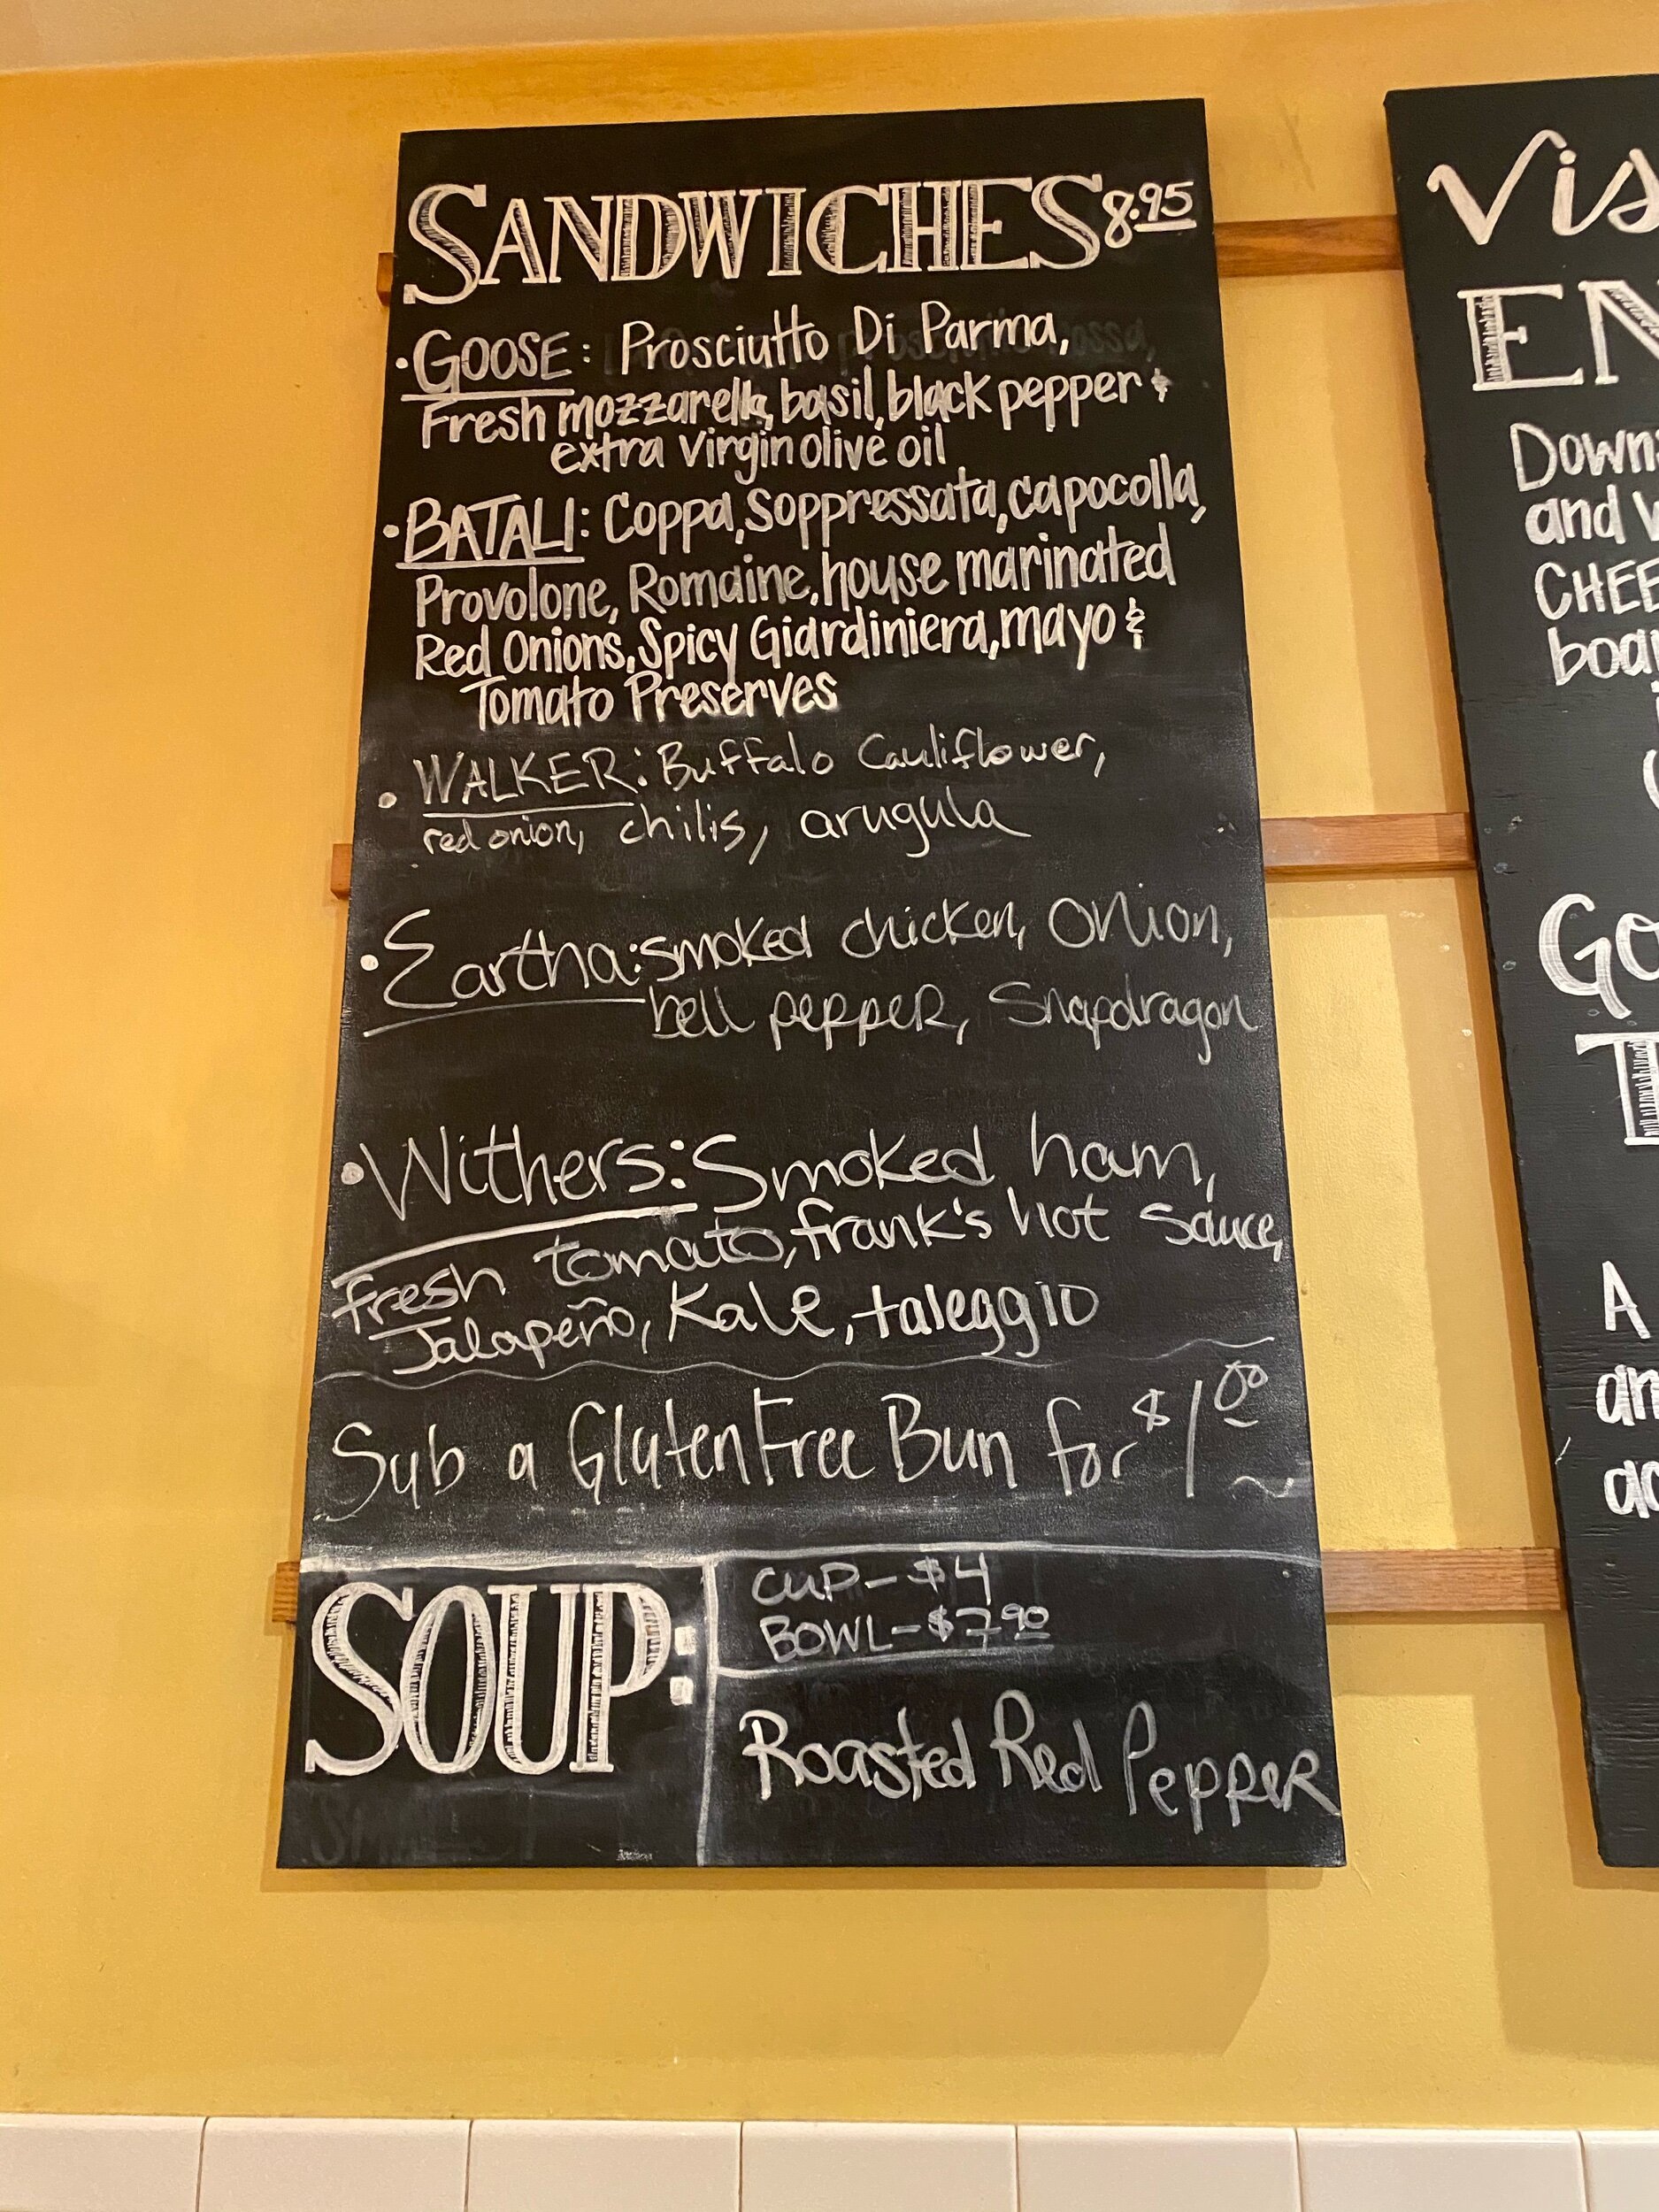 SANDWICHES 8.95
• GOOSE: Prosciutto Di Parma,
Fresh mozzarella, basil, black pepper &
extra virgin olive oil
• BATALI: Coppa, Soppressata, capocolla,
Provolone, Romaine, house marinated
Red Onions, Spicy Giardiniera, mayo &
Tomato Preserves
• WALKER: Buffalo Cauliflower,
red onion, chilis, arugula
• Eartha: smoked chicken, onion,
bell pepper, Snapdragon
• Withers: Smoked ham,
fresh tomato, frank's hot sauce,
Jalapeño, Kale, taleggio
Sub a Gluten Free Bun for $1 00
~
SOUP:
CUP - $4
BOWL - $7 90
Roasted Red Pepper
Vis
EN
Down
and
CHEE
boa
Go
T
A
an